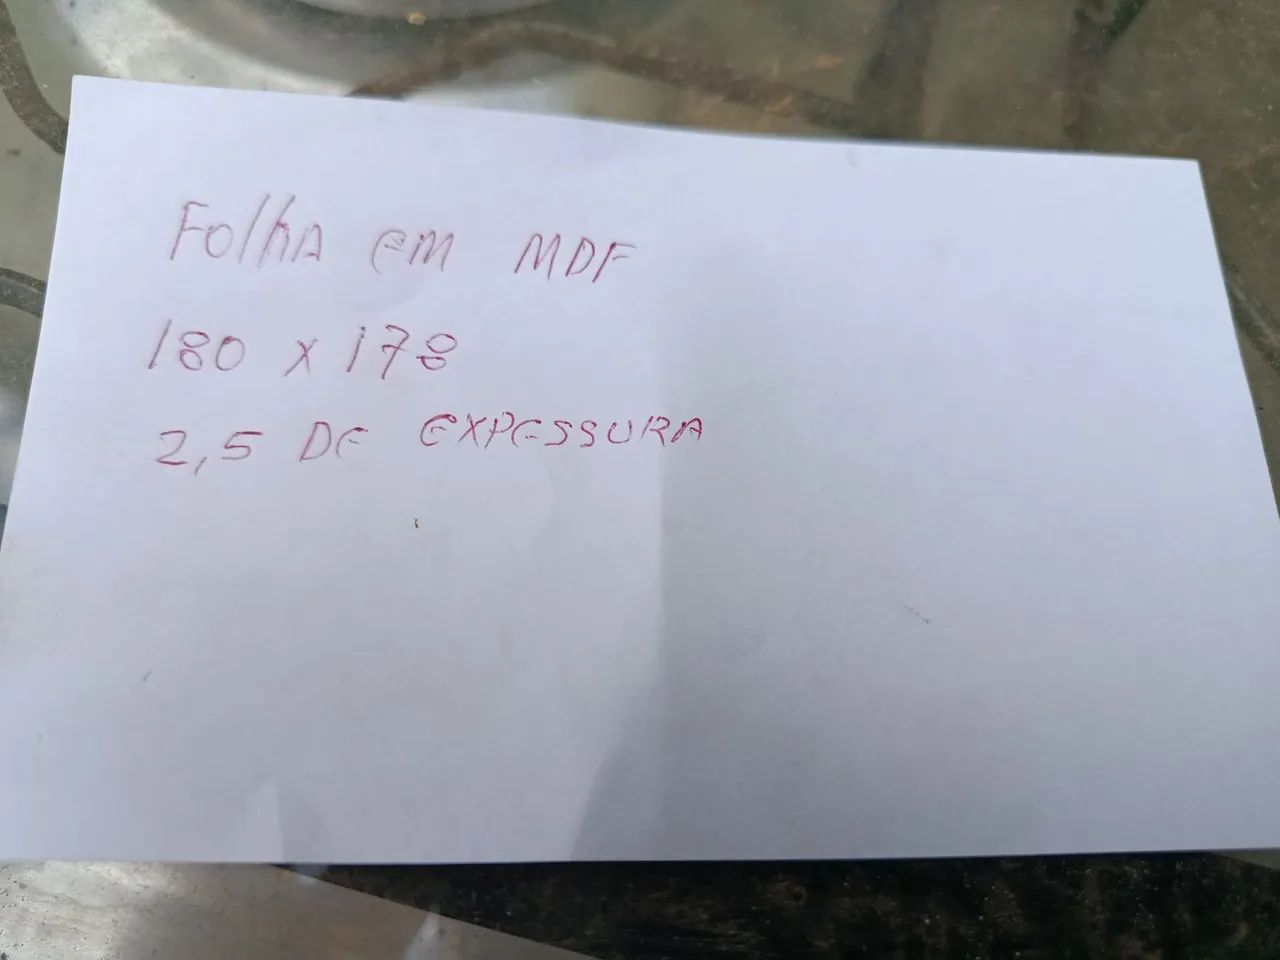 FolhA em MDF
180 x 178
2,5 DE EXPESSURA